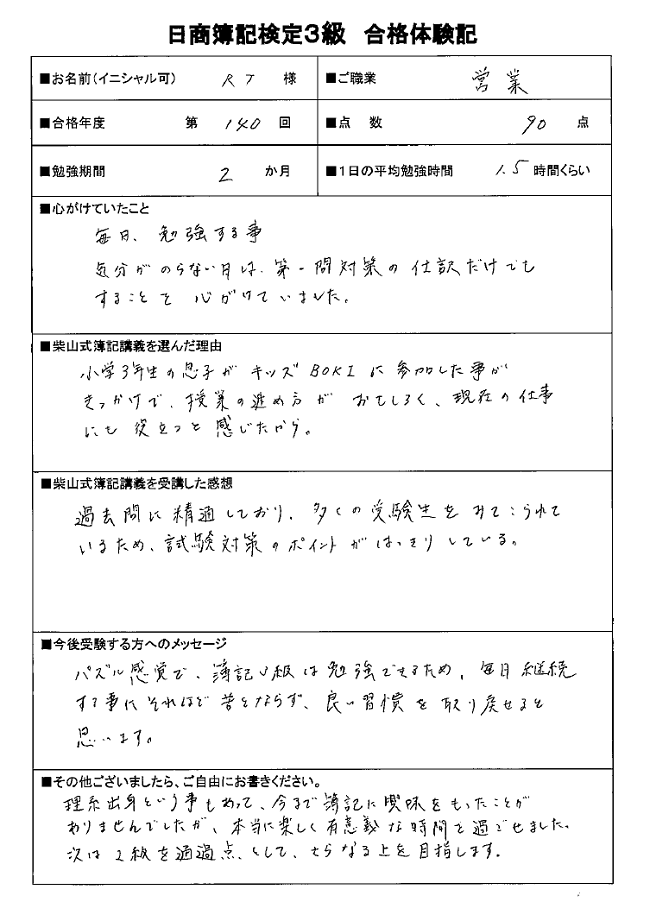 日商簿記検定3級 合格体験記
■お名前(イニシャル可) RT 様 ■ご職業 営業
■合格年度 第 140 回 ■点 数 90 点
■勉強期間 2 か月 ■1日の平均勉強時間 1.5 時間くらい
■心がけていたこと
毎日、勉強する事
気分がのらない日は、第一問対策の仕訳だけでも
することを心がけていました。
■柴山式簿記講義を選んだ理由
小学3年生の息子がキッズBOKIに参加した事が
きっかけで、授業の進め方がおもしろく、現在の仕事
にも役立つと感じたから。
■柴山式簿記講義を受講した感想
過去問に精通しており、多くの受験生をみてこられて
いるため、試験対策のポイントがはっきりしている。
■今後受験する方へのメッセージ
パズル感覚で、簿記3級は勉強できるため、毎日継続
する事にそれほど苦とならず、良い習慣を取り戻せると
思います。
■その他ございましたら、ご自由にお書きください。
理系出身という事もあって、今まで簿記に興味をもったことが
ありませんでしたが、本当に楽しく有意義な時間を過ごせました。
次は2級を通過点として、さらなる上を目指します。